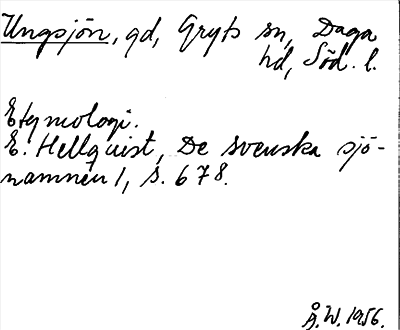 Ungsjön, gd, Gryts sn, Daga
hd, Söd. l.
Etymologi.
E. Hellquist, De svenska sjö-
namnen 1, s. 678.
Å. W. 1956.